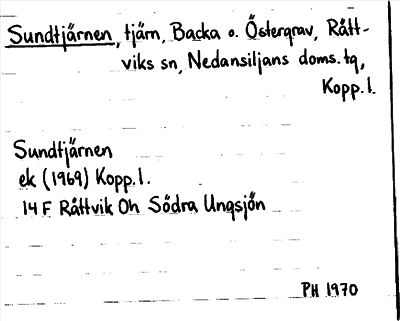 Sundtjärnen, tjärn, Backa o. Östergrav, Rätt-
viks sn, Nedansiljans doms. tg,
Kopp. l.
Sundtjärnen
ek (1969) Kopp. l.
14 F Rättvik Öh Södra Ungsjön
PH 1970